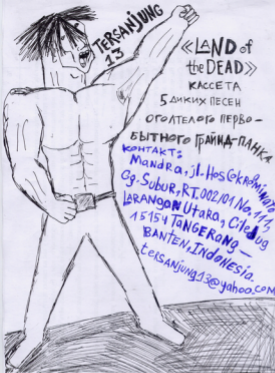 TERSANJUNG
13
«LAND of
the DEAD»
КАССЕТА
5 ДИКИХ ПЕСЕН
ОГОЛТЕЛОГО ПЕРВО-
БЫТНОГО ГРАЙНД-ПАНКА
КОНТАКТ:
Mandra, jl. Hos Cokrominoto
Gg. Subur, RT. 002/01 No. 113
LARANGAN Utara, Ciledug
15154 TANGERANG –
BANTEN, INDONESIA.
tersanjung13@yahoo.com